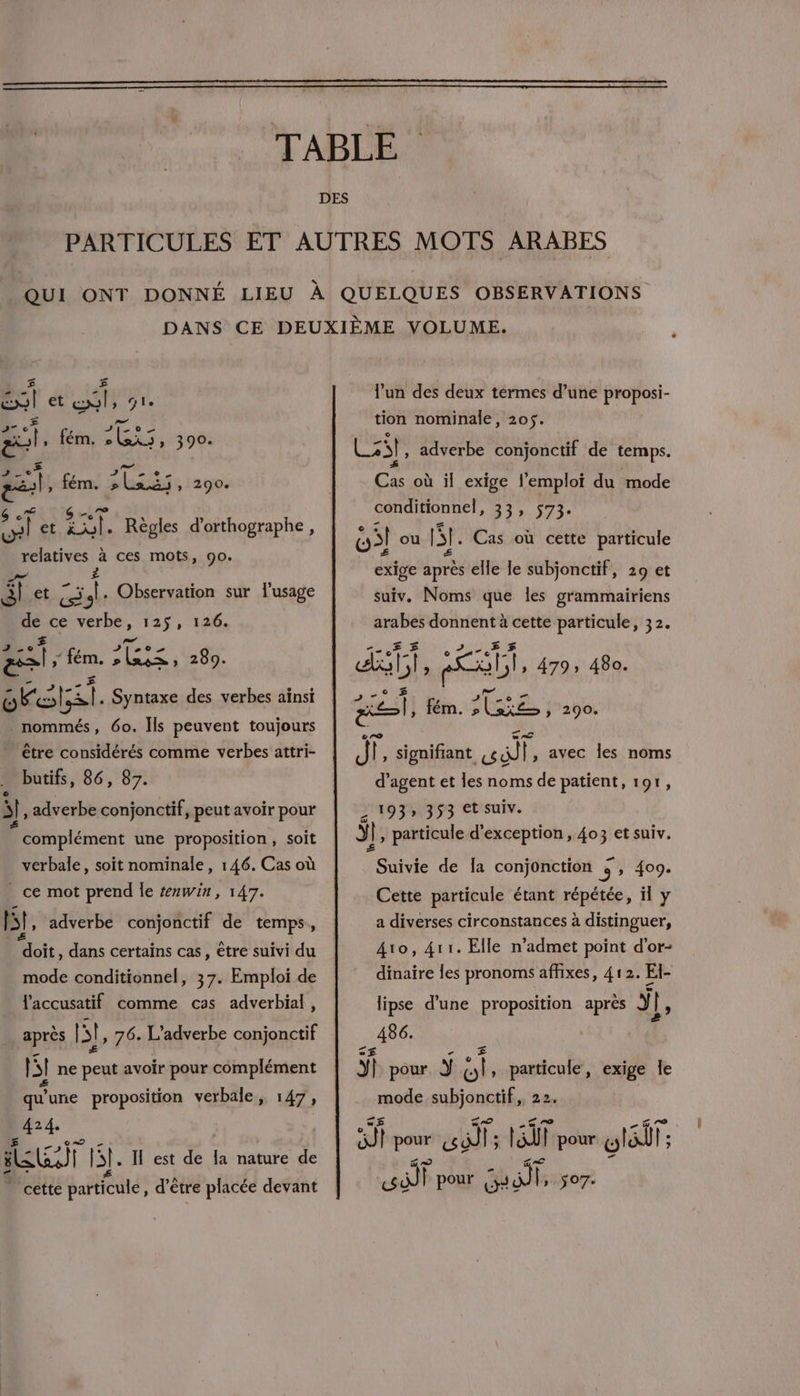 TABLE
DES
PARTICULES ET AUTRES MOTS ARABES
QUI ONT DONNÉ LIEU À QUELQUES OBSERVATIONS
DANS CE DEUXIÈME VOLUME.
أَبَتِ et أَبَتَ, 91.
أَبْتَعُ, fém. بَتْعَآءُ, 390.
أَبْصَعُ, fém. بَصْعَآءُ, 290.
اِبْنٌ et اِبْنَةٌ. Règles d'orthographe,
relatives à ces mots, 90.
آتَى et أُوتِىَ. Observation sur l'usage
de ce verbe, 125, 126.
أَجْمَعُ, fém. جَمْعَآءُ, 289.
أَخَوَاتُ كَانَ. Syntaxe des verbes ainsi
nommés, 60. Ils peuvent toujours
être considérés comme verbes attri-
butifs, 86, 87.
إِذْ, adverbe conjonctif, peut avoir pour
complément une proposition, soit
verbale, soit nominale, 146. Cas où
ce mot prend le tenwin, 147.
إِذَا, adverbe conjonctif de temps,
doit, dans certains cas, être suivi du
mode conditionnel, 37. Emploi de
l'accusatif comme cas adverbial,
après إِذَا, 76. L'adverbe conjonctif
إِذَا ne peut avoir pour complément
qu'une proposition verbale, 147,
424.
إِذَا ٱلْفُجَآءَةِ. Il est de la nature de
cette particule, d'être placée devant
l'un des deux termes d'une proposi-
tion nominale, 205.
إِذْمَا, adverbe conjonctif de temps.
Cas où il exige l'emploi du mode
conditionnel, 33, 573.
إِذَنْ ou إِذًا. Cas où cette particule
exige après elle le subjonctif, 29 et
suiv. Noms que les grammairiens
arabes donnent à cette particule, 32.
أَرَأَيْتَكَ, أَرَأَيْتَكُمْ, 479, 480.
أَكْتَعُ, fém. كَتْعَآءُ, 290.
أَلْ, signifiant ٱلَّذِى, avec les noms
d'agent et les noms de patient, 191,
193, 353 et suiv.
إِلَّا, particule d'exception, 403 et suiv.
Suivie de la conjonction وَ, 409.
Cette particule étant répétée, il y
a diverses circonstances à distinguer,
410, 411. Elle n'admet point d'or-
dinaire les pronoms affixes, 412. El-
lipse d'une proposition après إِلَّا,
486.
أَلَّا pour أَنْ لَا, particule, exige le
mode subjonctif, 22.
ٱلَّذْ pour ٱلَّذِى; ٱللَّذَا pour ٱللَّذَانِ;
ٱلَّذِى pour ٱلَّذِينَ, 507.